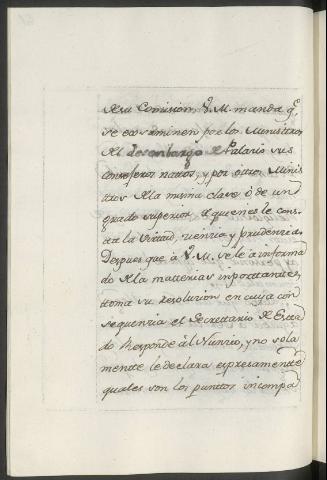 de su Comision V. M. manda q.e
se ecsaminen por los Ministros
del desembargo de Palacio sus
consejeros natos, y por otros Minis
tros de la misma clase ò de un
grado superior, de quienes le cons
ta la virtud, ciencia y prudencia.
Despues que à V. M. se le à informa
do de la matterias importtantes,
ttoma su resolucion en cuya con
sequenzia el Secrettario de Esta
do Responde al Nunzio, y no sola
mentte le declara espresamentte
quales son los punttos incompa